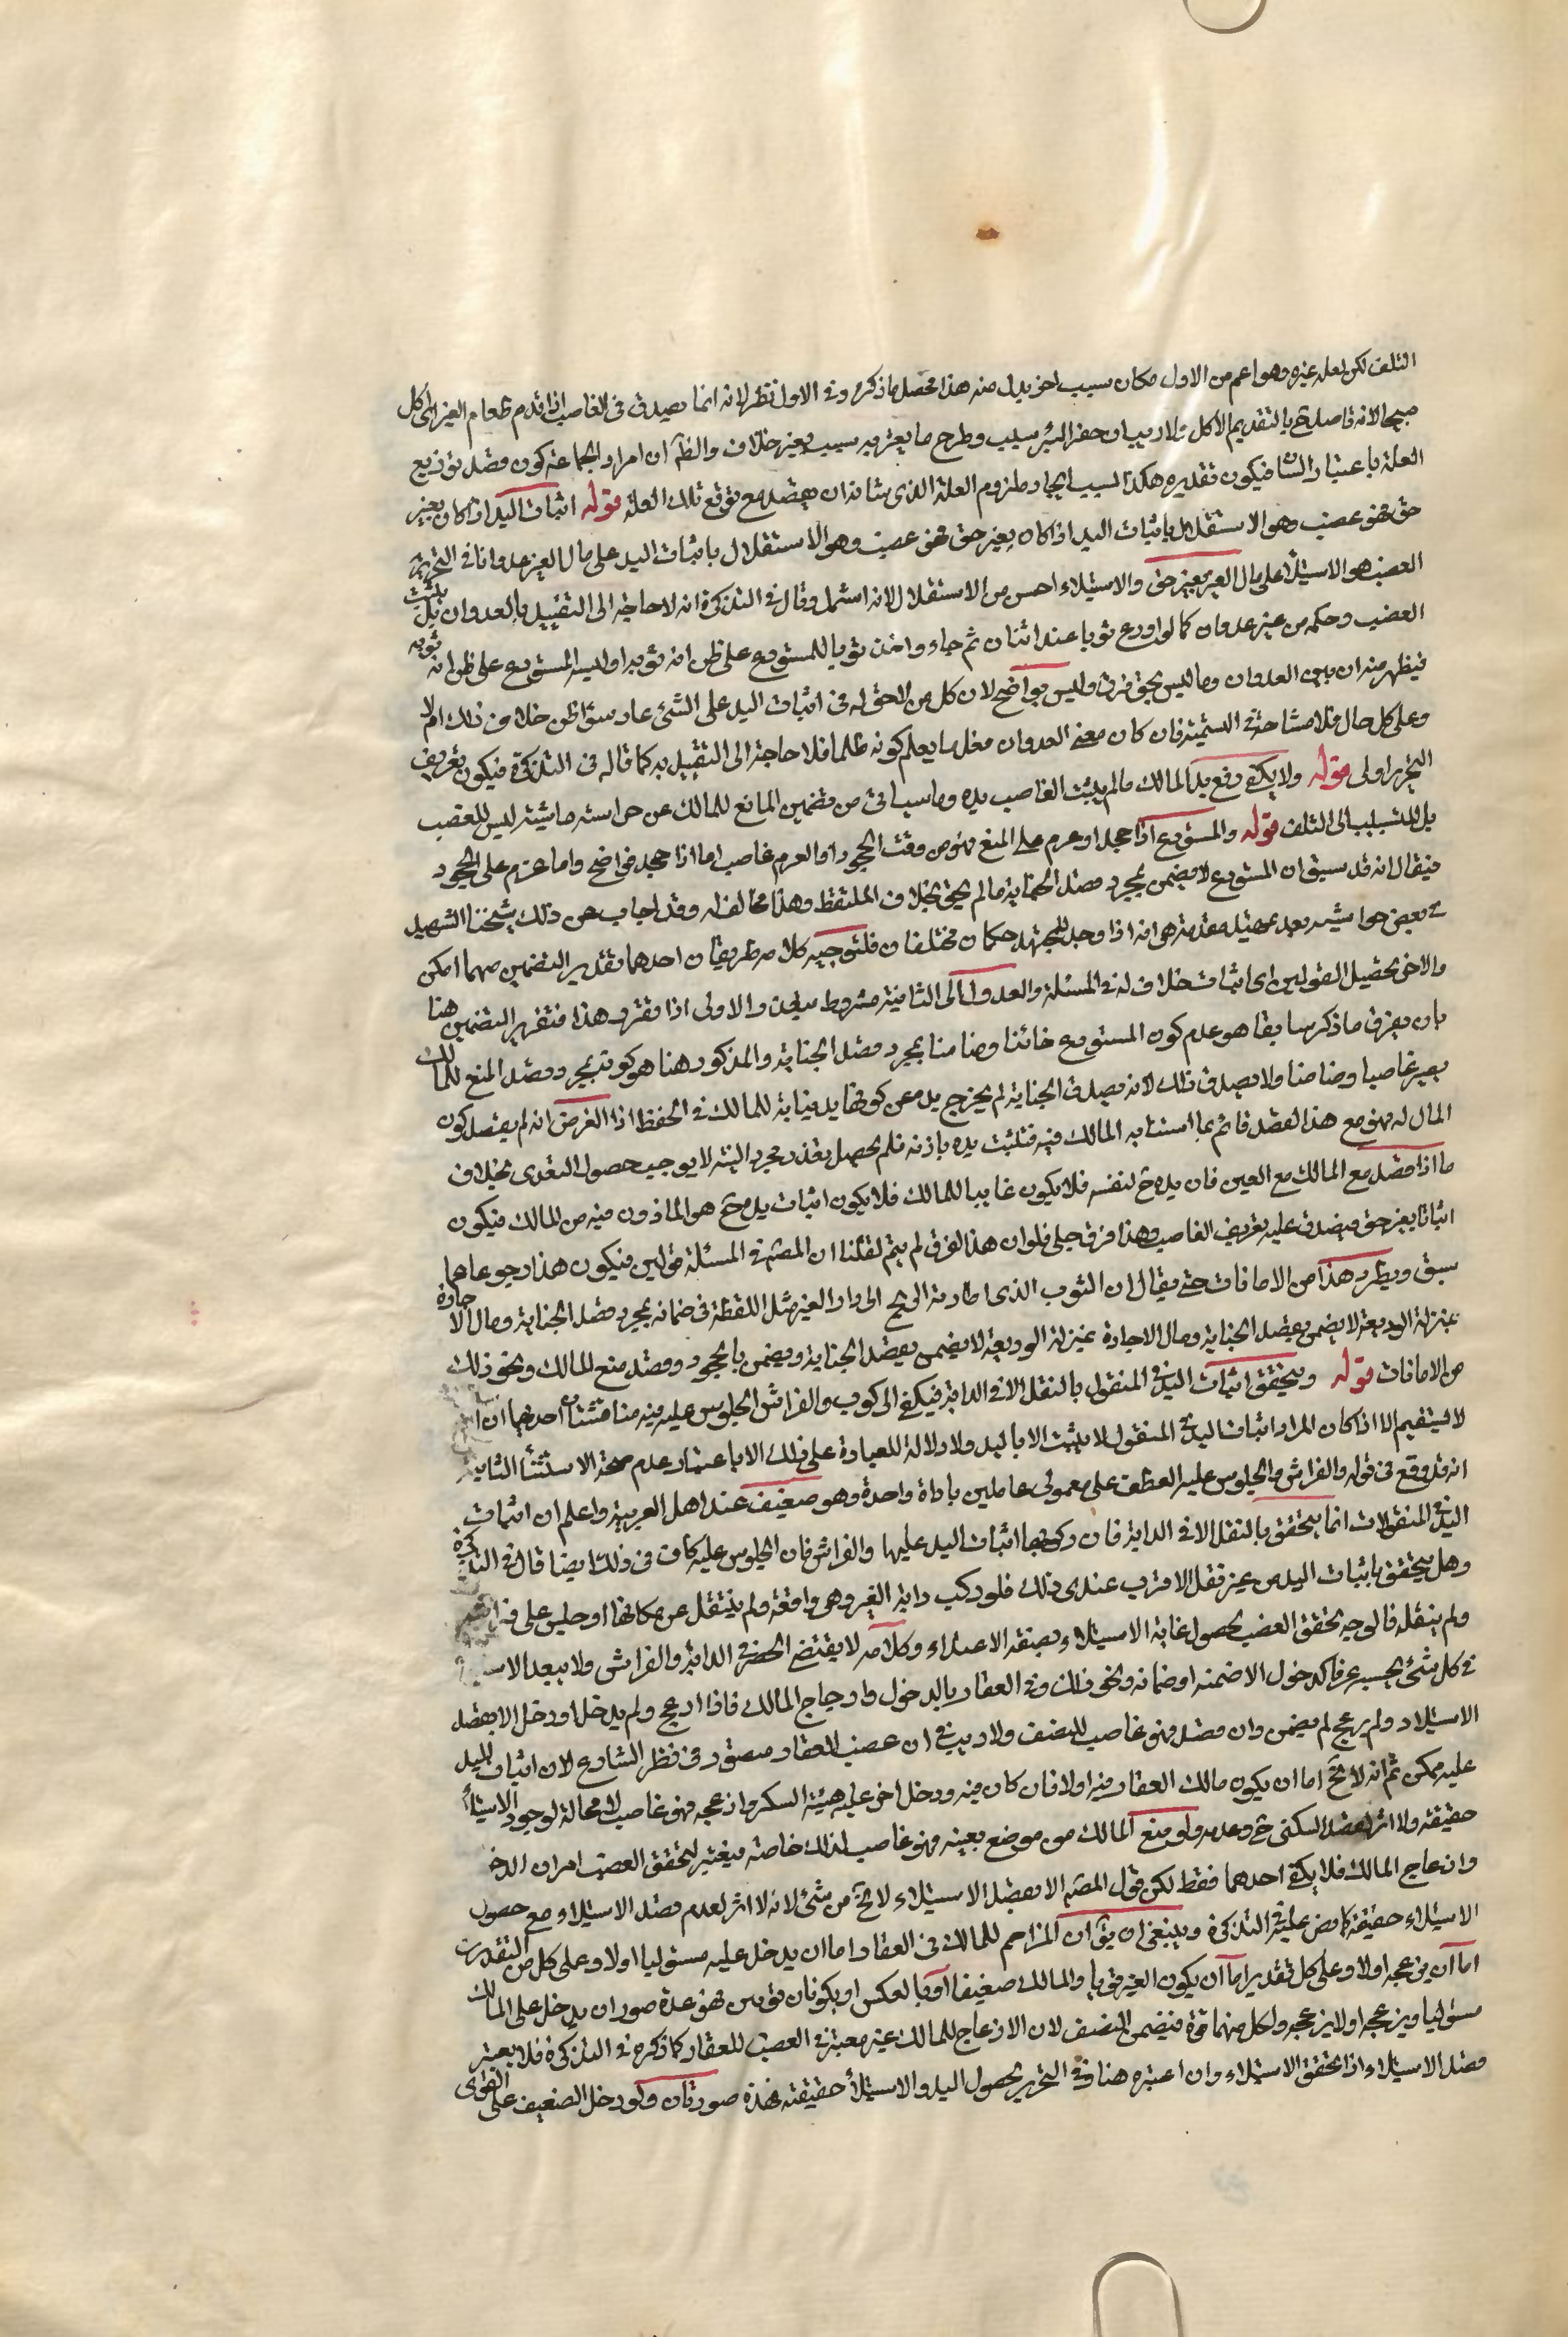 التلف لكن لعله غيره وهو اعم من الاول مكان سبب اخر بدل منه هذا محصل ما ذكره وفى الاول نظر لانه انما يصدق فى الغاصب اذا قدم طعام الغير الى اكل
العلة باعتبار الشا فيكون تقديره هكذا السبب ايجاد ملزوم العلة الذى شانه ان يقصد مع توقع تلك العلة قوله اثبات اليد اذا كان بغير
حق فهو غصب وهو الاستقلال باثبات اليد اذا كان بغير حق فهو غصب وهو الاستقلال باثبات اليد على مال الغير عدوانا فى التحرير
الغصب هو الاستيلا على مال الغير بغير حق والاستيلاء احسن من الاستقلال لانه اشمل وقال فى التذكرة انه لا حاجة الى التقييد بالعدوان بل يثبت
الغصب وحكمه من غير عدوان كما لو اودع ثوبا عند اثنان ثم جاء واخذ ثوبا للمستودع على ظن انه ثوبه او لبسه المستودع على ظن انه ثوبه
فيظهر منه ان بين العدوان وما ليس بحق فرق وليس بواضح لان كل من لا حق له فى اثبات اليد على الشئ عاد سواء ظن خلاف ذلك ام لا
وعلى كل حال فلا مشاحة فى التسمية فان كان معنى العدوان فعل ما يعلم كونه ظلما فلا حاجة الى التقييد به كما قاله فى التذكرة فيكون تعريف
التحرير اولى قوله ولا يكفى رفع يد المالك مالم يثبت الغاصب يده وما سياتى من تضمين المانع للمالك عن حراسته ماشيته ليس للغصب
بل للتسبيب الى التلف قوله والمستودع اذا جحد او عزم على المنع فهو من وقت الجحود او العزم غاصب اما اذا جحد فواضح واما عزم على الجحود
فيقال انه قد سبق ان المستودع لا يضمن بمجرد قصد الخيانة مالم يخن بخلاف الملتقط وهذا مخالف له وقد اجاب عن ذلك شيخنا الشهيد
فى بعض حواشيه بعد تمهيد مقدمة هى انه اذا وجد للمجتهد حكمان مختلفان فلتوجيه كلامه طريقان احدهما تقدير التضمين مهما امكن
والاخر تحصيل القولين اى اثبات خلاف له فى المسئلة والعدول الى الثانية مشروط بفقدان الاولى اذا تقرر هذا فتقرير التضمين هنا
بان يفرق ما ذكر سابقا هو عدم كون المستودع خائنا وضامنا بمجرد قصد الخيانة والمذكور هنا هو كونه بمجرد قصد المنع للمالك
يصير غاصبا وضامنا ولا يصدق ذلك لانه بصدق الخيانة لم يخرج يده عن كونها يد نيابة للمالك فى الحفظ اذا الفرض انه لم يقصد كون
المال له فهو مع هذا القصد قائم بما استنابه المالك فيه فتثبت يده باذنه فلم يحصل بعد ومجرد النية لا يوجب حصول التعدى بخلاف
ما اذا قصد مع المالك مع العين فان يده ح لنفسه فلا يكون نايبا للمالك فلا يكون اثبات يده ح هو الماذون فيه من المالك فيكون
اثباتا بغير حق فيصدق عليه تعريف الغاصب وهذا فرق جلى فلو ان هذا الفرق لم يتم لقلنا ان للمصنف فى المسئلة قولين فيكون هذا رجوعا عما
سبق ويطرد هذا من الامانات حتى يقال ان الثوب الذى اطارته الريح الى دار الغير مثل اللقطة فى ضمانه بمجرد قصد الخيانة ومال الاجارة
بمنزلة الوديعة لا يضمن بقصد الخيانة ومال الاجارة بمنزلة الوديعة لا يضمن بقصد الخيانة ويضمن بالجحود وقصد منع المالك ونحو ذلك
من الامانات قوله ويتحقق اثبات اليد فى المنقول بالنقل الا فى الدابة فيكفى الركوب والفراش الجلوس عليه فيه مناقشتان احدهما ان
لا يستقيم الا اذا كان المراد اثبات اليد فى المنقول لا يثبت الا باليد ولا دلالة للعبارة على ذلك الا باعتبار عدم صحة الاستثناء الثانية
انه قد وقع فى قوله والفراش والجلوس عليه العطف على معمولى عاملين باداة واحدة وهو ضعيف عند اهل العربية واعلم ان اثبات
اليد فى المنقولات انما يتحقق بالنقل الا فى الدابة فان ركوبها اثبات اليد عليها والفراش فان الجلوس عليه كاف فى ذلك ايضا قال فى التذكرة
وهل يتحقق باثبات اليد من غير نقل الاقرب عندى ذلك فلو ركب دابة الغير وهى واقفة ولم ينتقل عن مكانها او جلس على فراش
ولم ينقله فالوجه تحقق الغصب لحصول غاية الاستيلاء بصفة الاعتداء وكلامه لا يقتضى الحصر فى الدابة والفراش ولا يبعد
فى كل شئ بحسبه عرفا كدخول الا ضمنه او ضمانه ونحو ذلك وفى العقار بالدخول وازعاج المالك فاذا ازعج ولم يدخل او دخل لا بقصد
الاستيلاء ولم يزعج لم يضمن وان قصد فهو غاصب للنصف ولا ريب فى ان غصب العقار متصور فى نظر الشارع لان اثبات اليد
عليه ممكن ثم انه لا يخ اما ان يكون مالك العقار فيه اولا فان كان فيه ودخل اخر عليه هيئة السكنى وازعجه فهو غاصب لا محالة لوجود الاستيلاء
حقيقة ولا اثر لقصد السكنى ح وعدمه ولو منع المالك من موضع بعينه فهو غاصب لذلك خاصة فيعتبر لتحقق الغصب امران الدخ
وازعاج المالك فلا يكفى احدهما فقط لكن قول المصنف الا بقصد الاستيلاء لا يخ من شئ لانه لا اثر لعدم قصد الاستيلاء مع حصول
الاستيلاء حقيقة كما نص عليه فى التذكرة وينبغى ان يق ان المزاحم للمالك فى العقار اما ان يدخل عليه مستوليا اولا وعلى كل من التقديرين
اما ان يزعجه اولا وعلى كل تقدير اما ان يكون الغير قويا والمالك ضعيفا او بالعكس او يكونان قويين فهو عدة صور ان يدخل على المالك
مستوليا ويزعجه او لا يزعجه ولكل منهما قوة فيضمن النصف لان الازعاج للمالك غير معتبر فى الغصب للعقار كما ذكره فى التذكرة فلا يعتبر
قصد الاستيلاء اذا تحقق الاستيلاء وان اعتبره هنا وفى التحرير لحصول اليد والاستيلاء حقيقة فهذه صورتان ولو دخل الضعيف على القوى